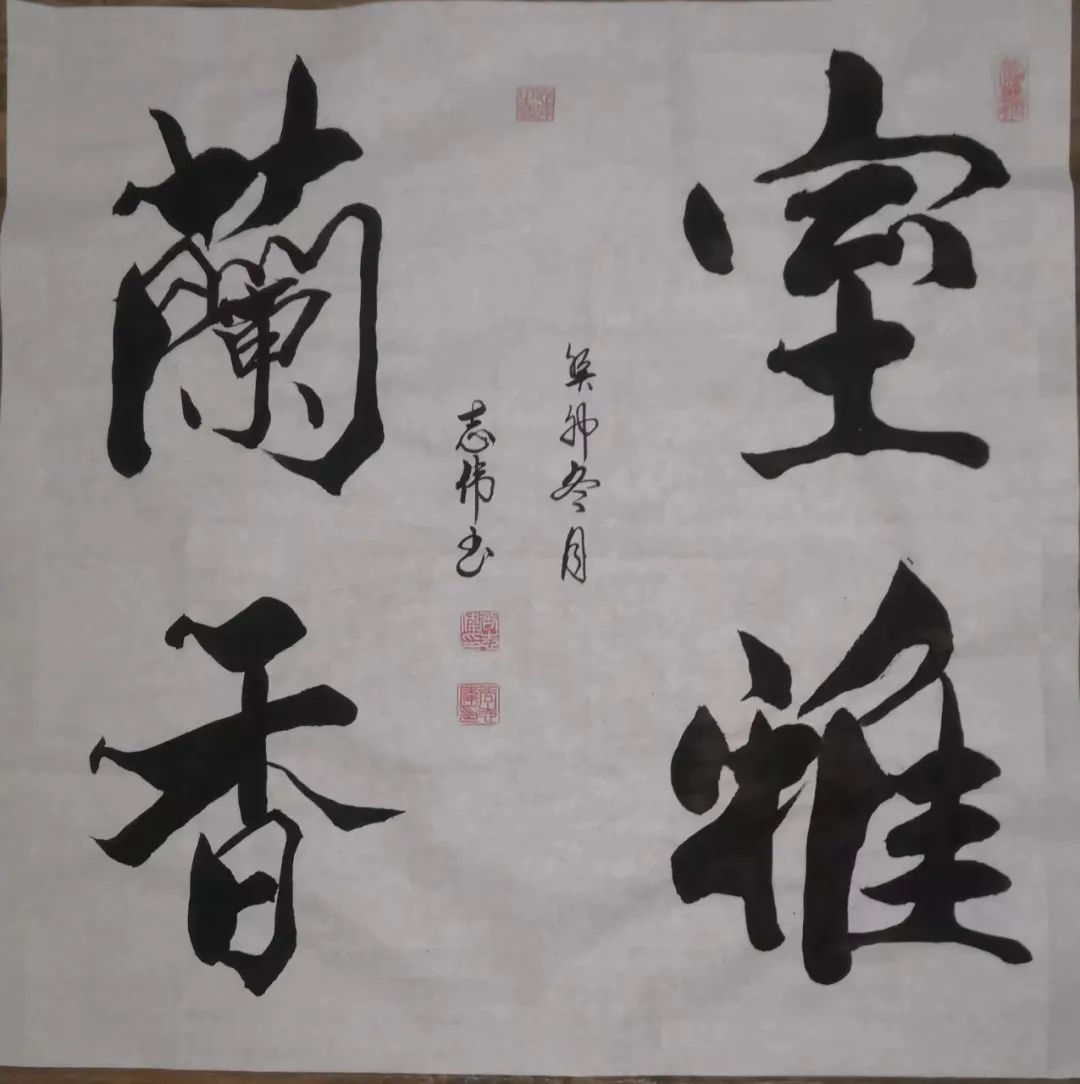 室雅
蘭香
癸卯冬月
志伟书